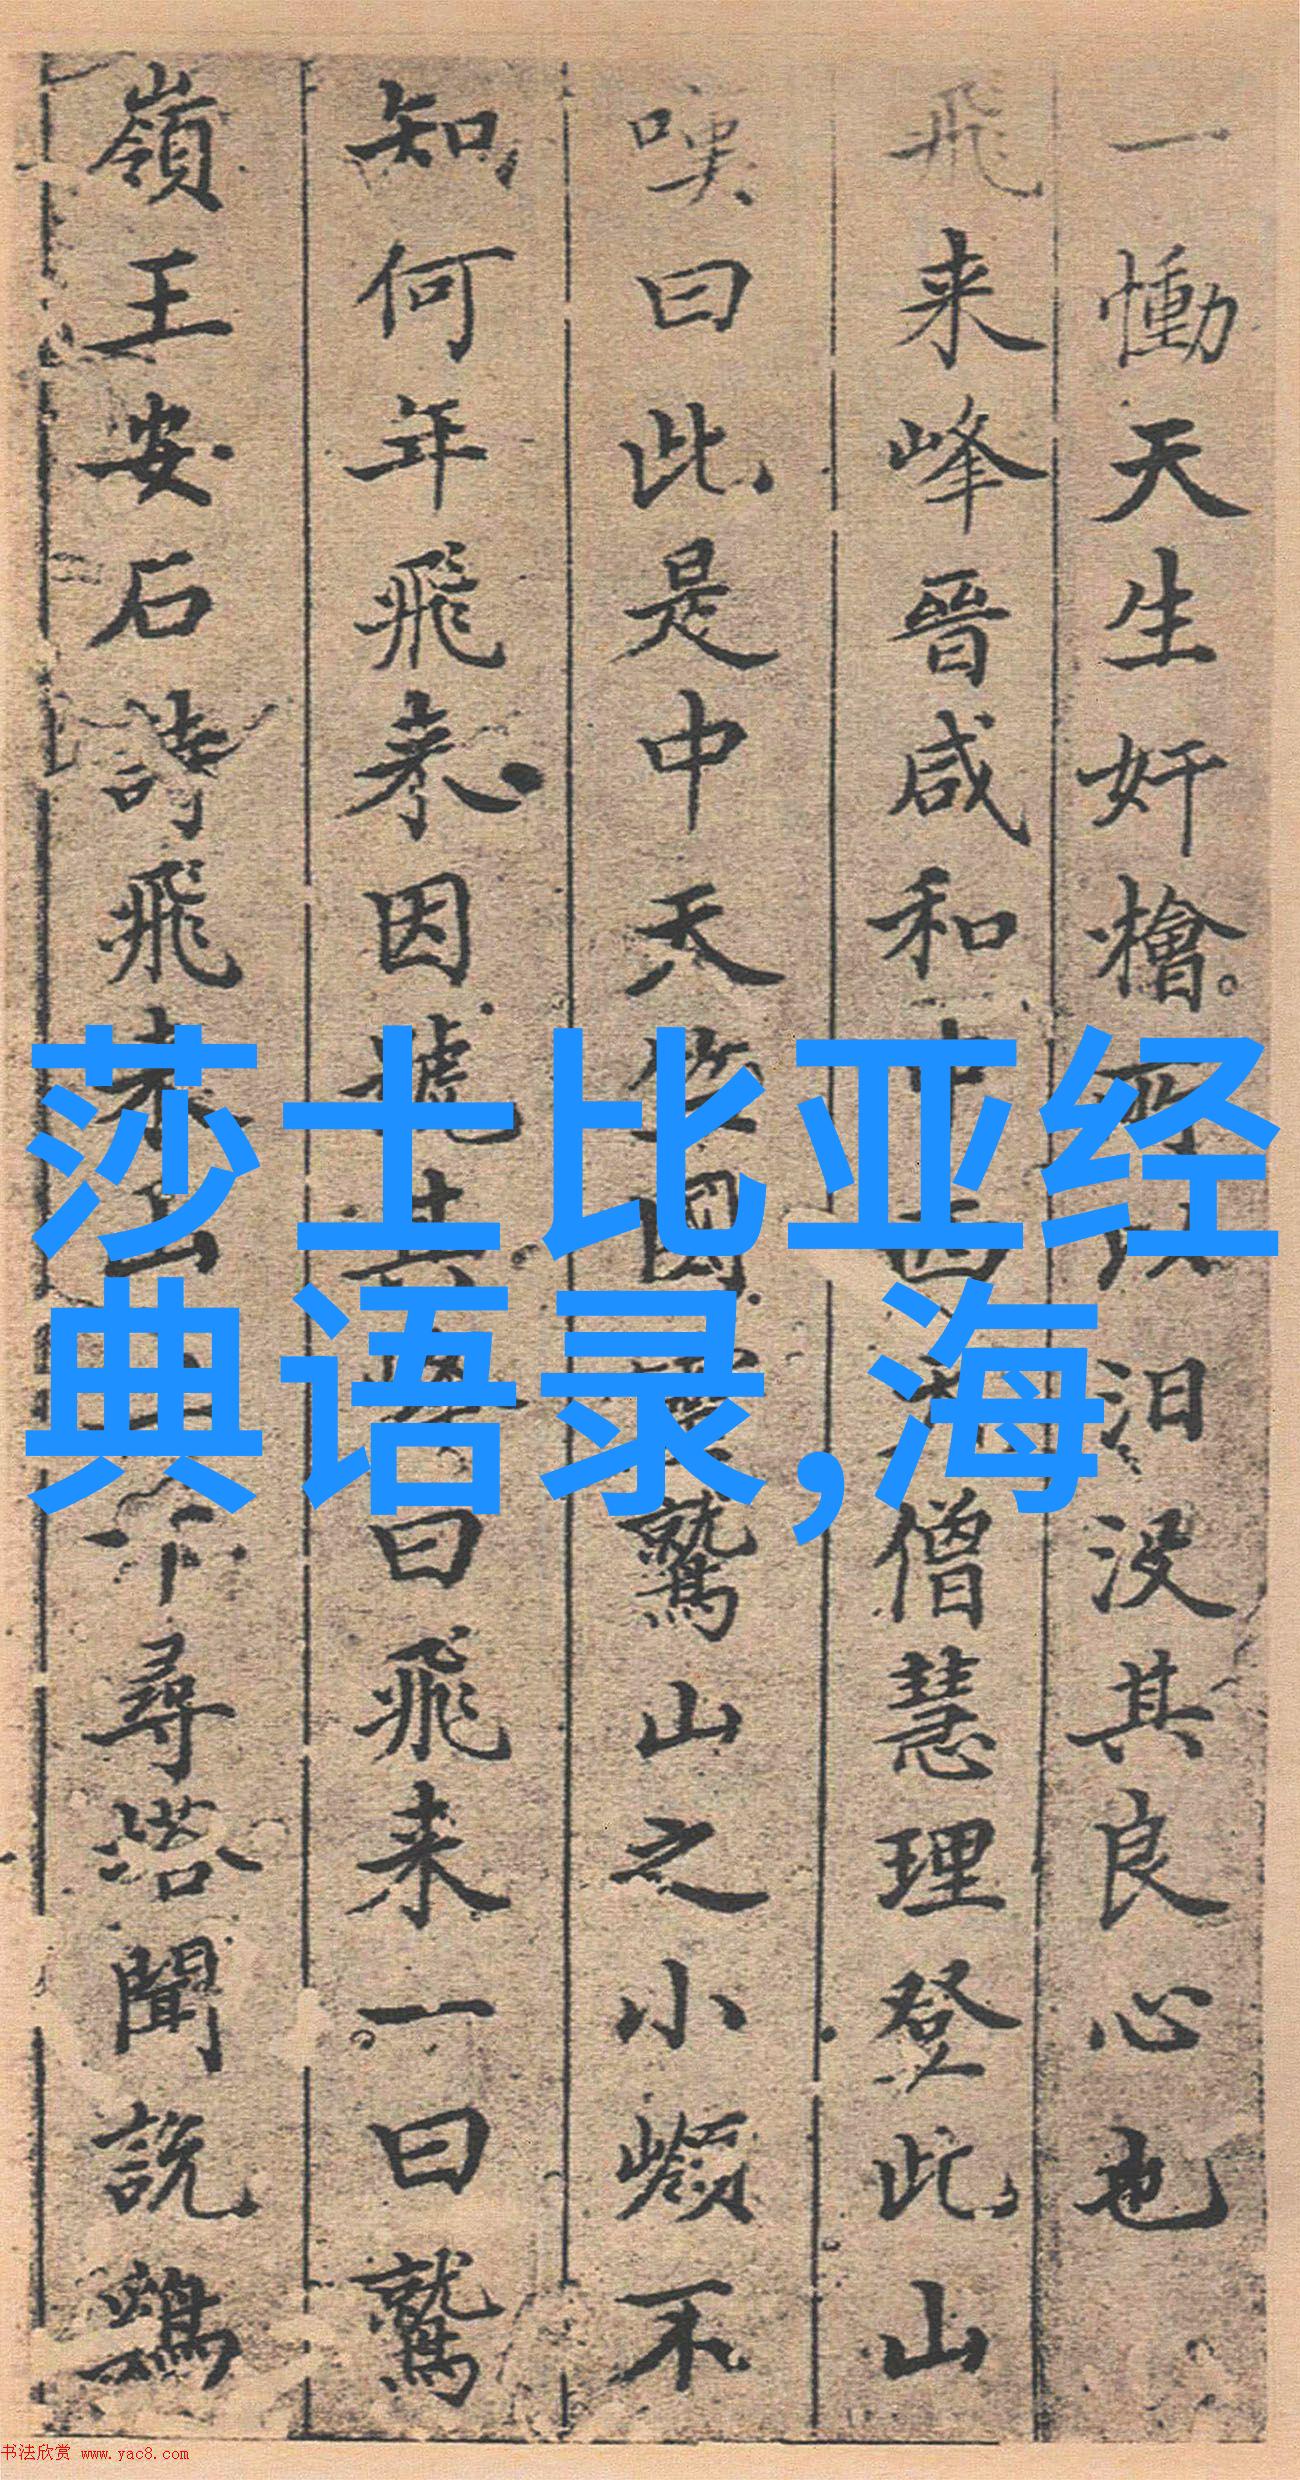 一慟天生奸檜
汨没其良心也
飛来峰晉咸和
僧慧理登此山
嘆曰此是中天
國
鷲山之小嶺不
知何年飛來因號其
曰飛来一曰鷲
嶺王安石詩飛来山
下尋塔聞説鷄
莎士比亚经
典语录,海
书法欣赏 www.yac8.com